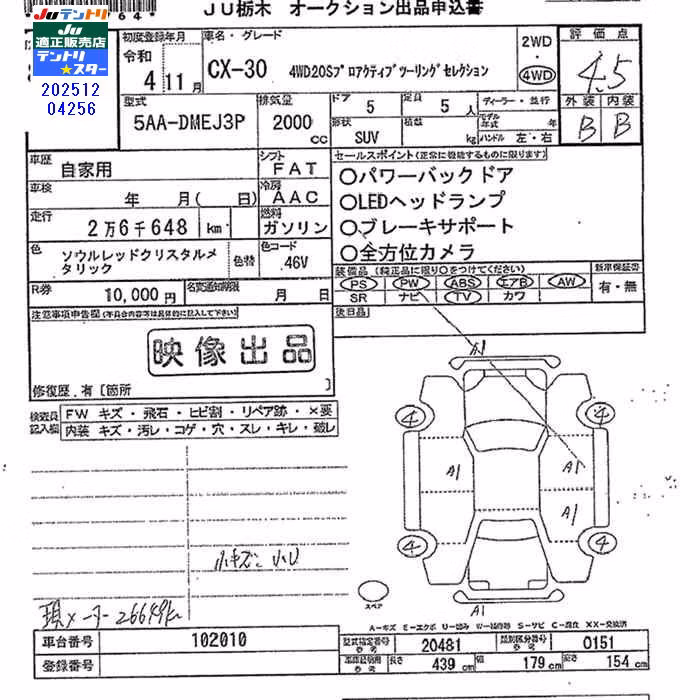 64
JU栃木 オークション出品申込書
Juテントリ
JU適正販売店
テントリ★スター
202512
04256
初度登録年月
令和 4 11月
車名・グレード
CX-30 4WD20Sプロアクティブツーリングセレクション
2WD
・
4WD
評価点
4.5
型式
5AA-DMEJ3P
排気量
2000cc
ドア 5
定員 5人
ディーラー・並行
形状 SUV
積載 kg
モデル年式 年
ハンドル 左・右
外装 内装
B B
車歴 自家用
シフト FAT
車検 年 月( 日)
冷房 AAC
走行 2万6千648km
燃料 ガソリン
色 ソウルレッドクリスタルメタリック
色替
色コード 46V
R券 10,000円
名変通知期限 月 日
セールスポイント(正常に機能するものに限ります)
○パワーバックドア
○LEDヘッドランプ
○ブレーキサポート
○全方位カメラ
装備品(純正品に限り○をつけてください)
PS PW ABS エアB AW
SR ナビ TV カワ
新車保証書
有・無
後日品
注意事項申告欄(不具合内容等は具体的に記入して下さい)
映像出品
修復歴.有〔箇所 〕
検査員記入欄
FW キズ・飛石・ヒビ割・リペア跡・×要
内装 キズ・汚レ・コゲ・穴・スレ・キレ・破レ
A1
4 4
A1 A1
A1
4 4
スペア
A1
小キズ 小U
現メーター26649km
A-キズ E-エクボ U-凹み W-補修跡 S-サビ C-腐食 XX-交換済
車台番号 102010
登録番号
型式指定番号 参考 20481
類別区分番号 参考 0151
車庫証明用 参考 長さ 439cm 幅 179cm 高さ 154cm